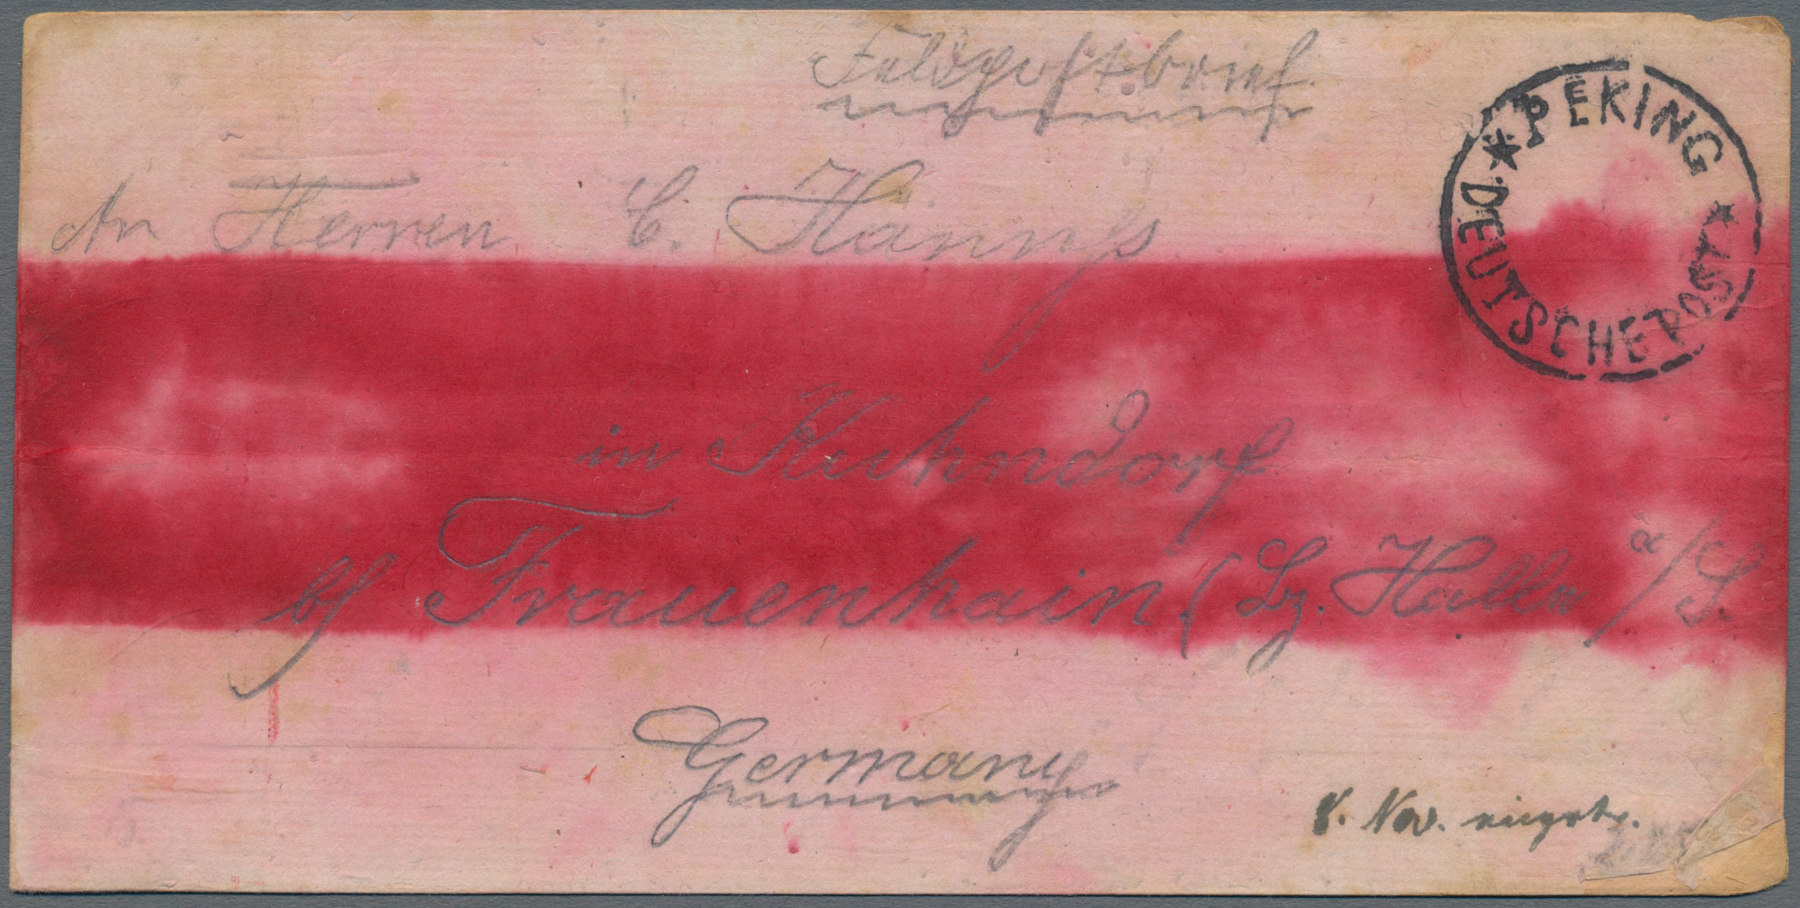 Feldpostbrief.
PEKING
DEUTSCHE POST
An Herren C. Hännyß
in Kuhndorf
b/ Frauenhain (Bz. Halle a/S.
Germany
8. Nov.